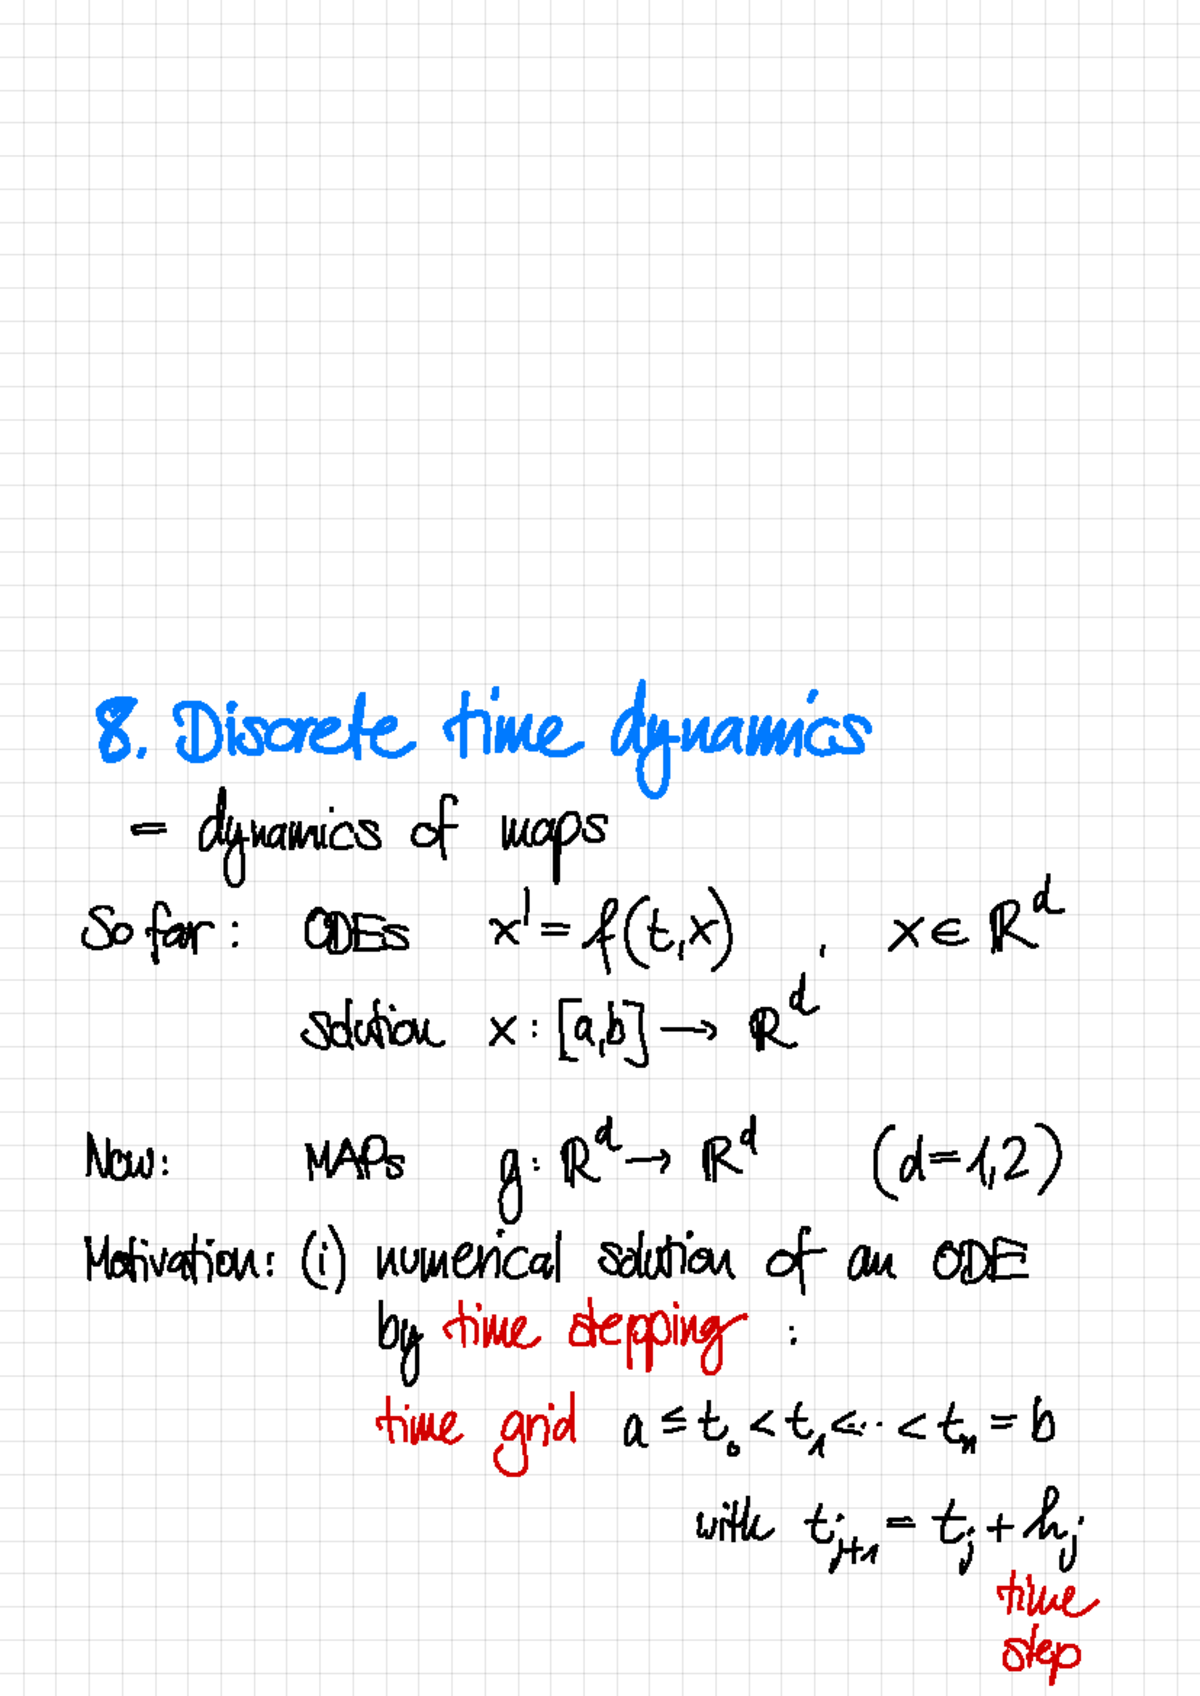 8. Discrete time dynamics
= dynamics of maps
So far: ODEs x' = f(t,x), x ∈ ℝᵈ
solution x : [a,b] → ℝᵈ
Now: MAPs g: ℝᵈ → ℝᵈ (d=1,2)
Motivation: (i) numerical solution of an ODE
by time stepping :
time grid a ≤ t₀ < t₁ < ... < tₙ = b
with t_{j+1} = t_j + h_j
time
step